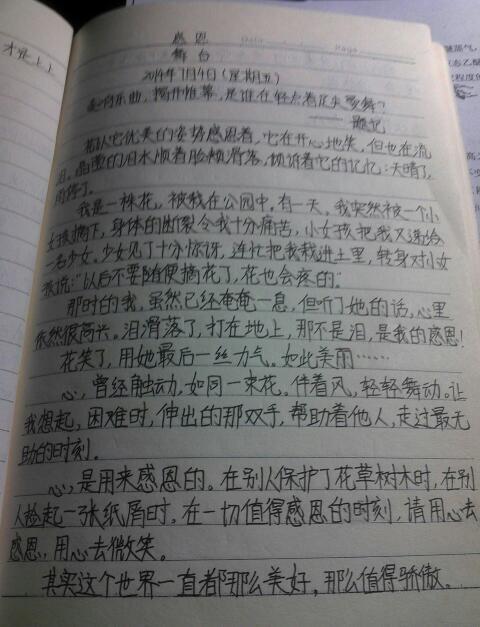 感恩
舞台
2014年7月4日(星期五)
奏响乐曲,揭开帷幕,是谁在轻点着足尖曼舞?
——题记
花以它优美的姿势感恩着,它在开心地笑,但也在流
泪,晶莹的泪水顺着脸颊滑落,倾诉着它的记忆:天晴了,
雨停了。
我是一株花,被栽在公园中。有一天,我突然被一个小
女孩摘下,身体的断裂令我十分痛苦,小女孩把我又递给
一名少女,少女见了十分惊讶,连忙把我栽进土里,转身对小女
孩说:"以后不要随便摘花了,花也会疼的。"
那时的我,虽然已经奄奄一息,但听了她的话,心里
依然很高兴。泪滑落了,打在地上,那不是泪,是我的感恩!
花笑了,用她最后一丝力气。如此美丽……
心,曾经触动,如同一束花。伴着风,轻轻舞动。让
我想起,困难时,伸出的那双手,帮助着他人,走过最无
助的时刻。
心,是用来感恩的。在别人保护了花草树木时,在别
人捡起一张纸屑时,在一切值得感恩的时刻,请用心去
感恩,用心去微笑。
其实这个世界一直都那么美好,那么值得骄傲。
才是上上